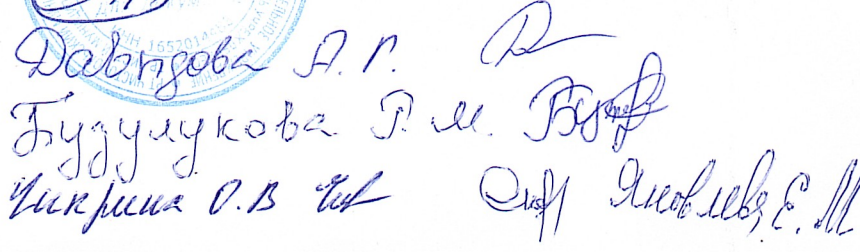 Давыдова А. Г.
Бузулукова Р. М.
Чикрина О.В Яковлева Е. М